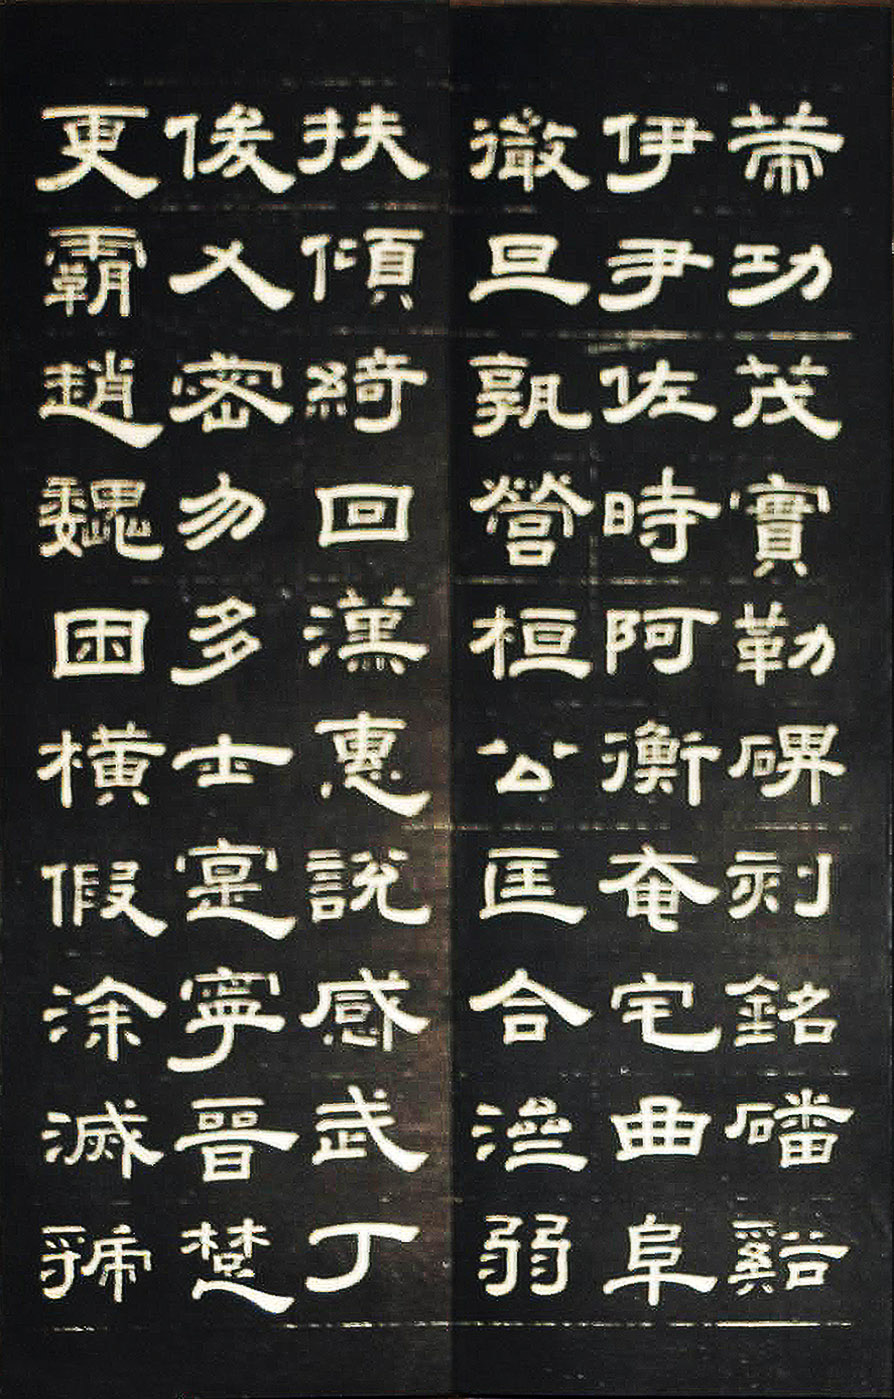 策功茂實勒碑刻銘磻谿
伊尹佐時阿衡奄宅曲阜
微旦孰營桓公匡合濟弱
扶傾綺回漢惠說感武丁
俊乂密勿多士寔寧晉楚
更霸趙魏困橫假涂滅虢